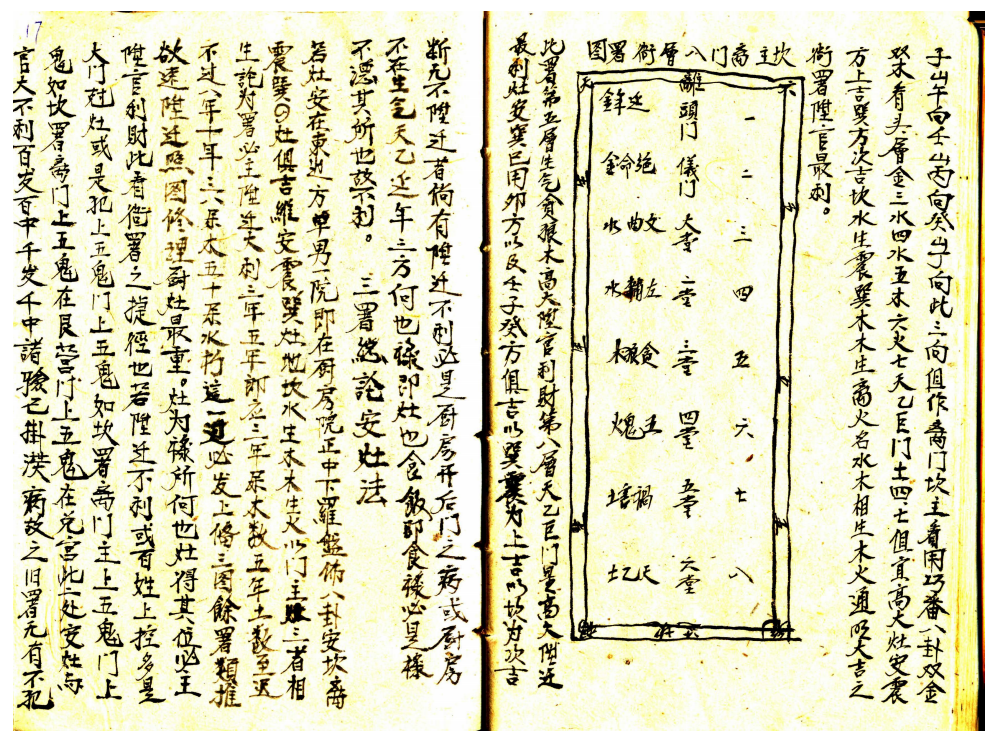 子山午向壬山丙向癸山丁向此三向俱作离门坎主看用巧番八卦双金
双木看头層金三水四水五木六火七天乙巨门土四七俱宜高大灶安震
方上吉巽方次吉坎水生震巽木木生离火名水木相生木火通明大吉之
衙署陞官最利。
坎主离门八層衙署图
一 二 三 四 五 六 七 八
離頭门 儀门 大堂 二堂 三堂 四堂 五堂 六堂
延年金 絕命金 文曲水 左輔水 貪狼木 五鬼火 禍害土 天乙土
此署第五層生气貪狼木高大陞官利財第八層天乙巨门是高大陞迁
最利灶安巽巳用卯方以及壬子癸方俱吉以巽震为上吉以坎为次吉
断无不陞迁者倘有陞迁不利必是厨房开后门之病或厨房
不在生气天乙延年三方何也祿即灶也食飯即食祿必是祿
不得其所也故不利。
三署總論安灶法
若灶安在東边方單男一院即在厨房院正中下羅盤佈八卦安坎离
震巽的灶俱吉維安震巽灶地坎水生木木生火以门主灶三者相
生論为署必主陞迁大利二年五年即应三年是木数五年土数至迟
不过八年十年三六是木五十是水行這一道必发上修三图餘署類推
欲速陞迁照图修理厨灶最重。灶为祿所何也灶得其位必主
陞官利財此看衙署之捷徑也若陞迁不利或百姓上控多是
大门尅灶或是犯上五鬼门上五鬼如坎署离门主上五鬼门上
鬼如坎署离门上五鬼在艮营门上五鬼在兑宫此上处安灶与
官大不利百发百中千发千中諸驗已掛漠病故之旧署无有不犯